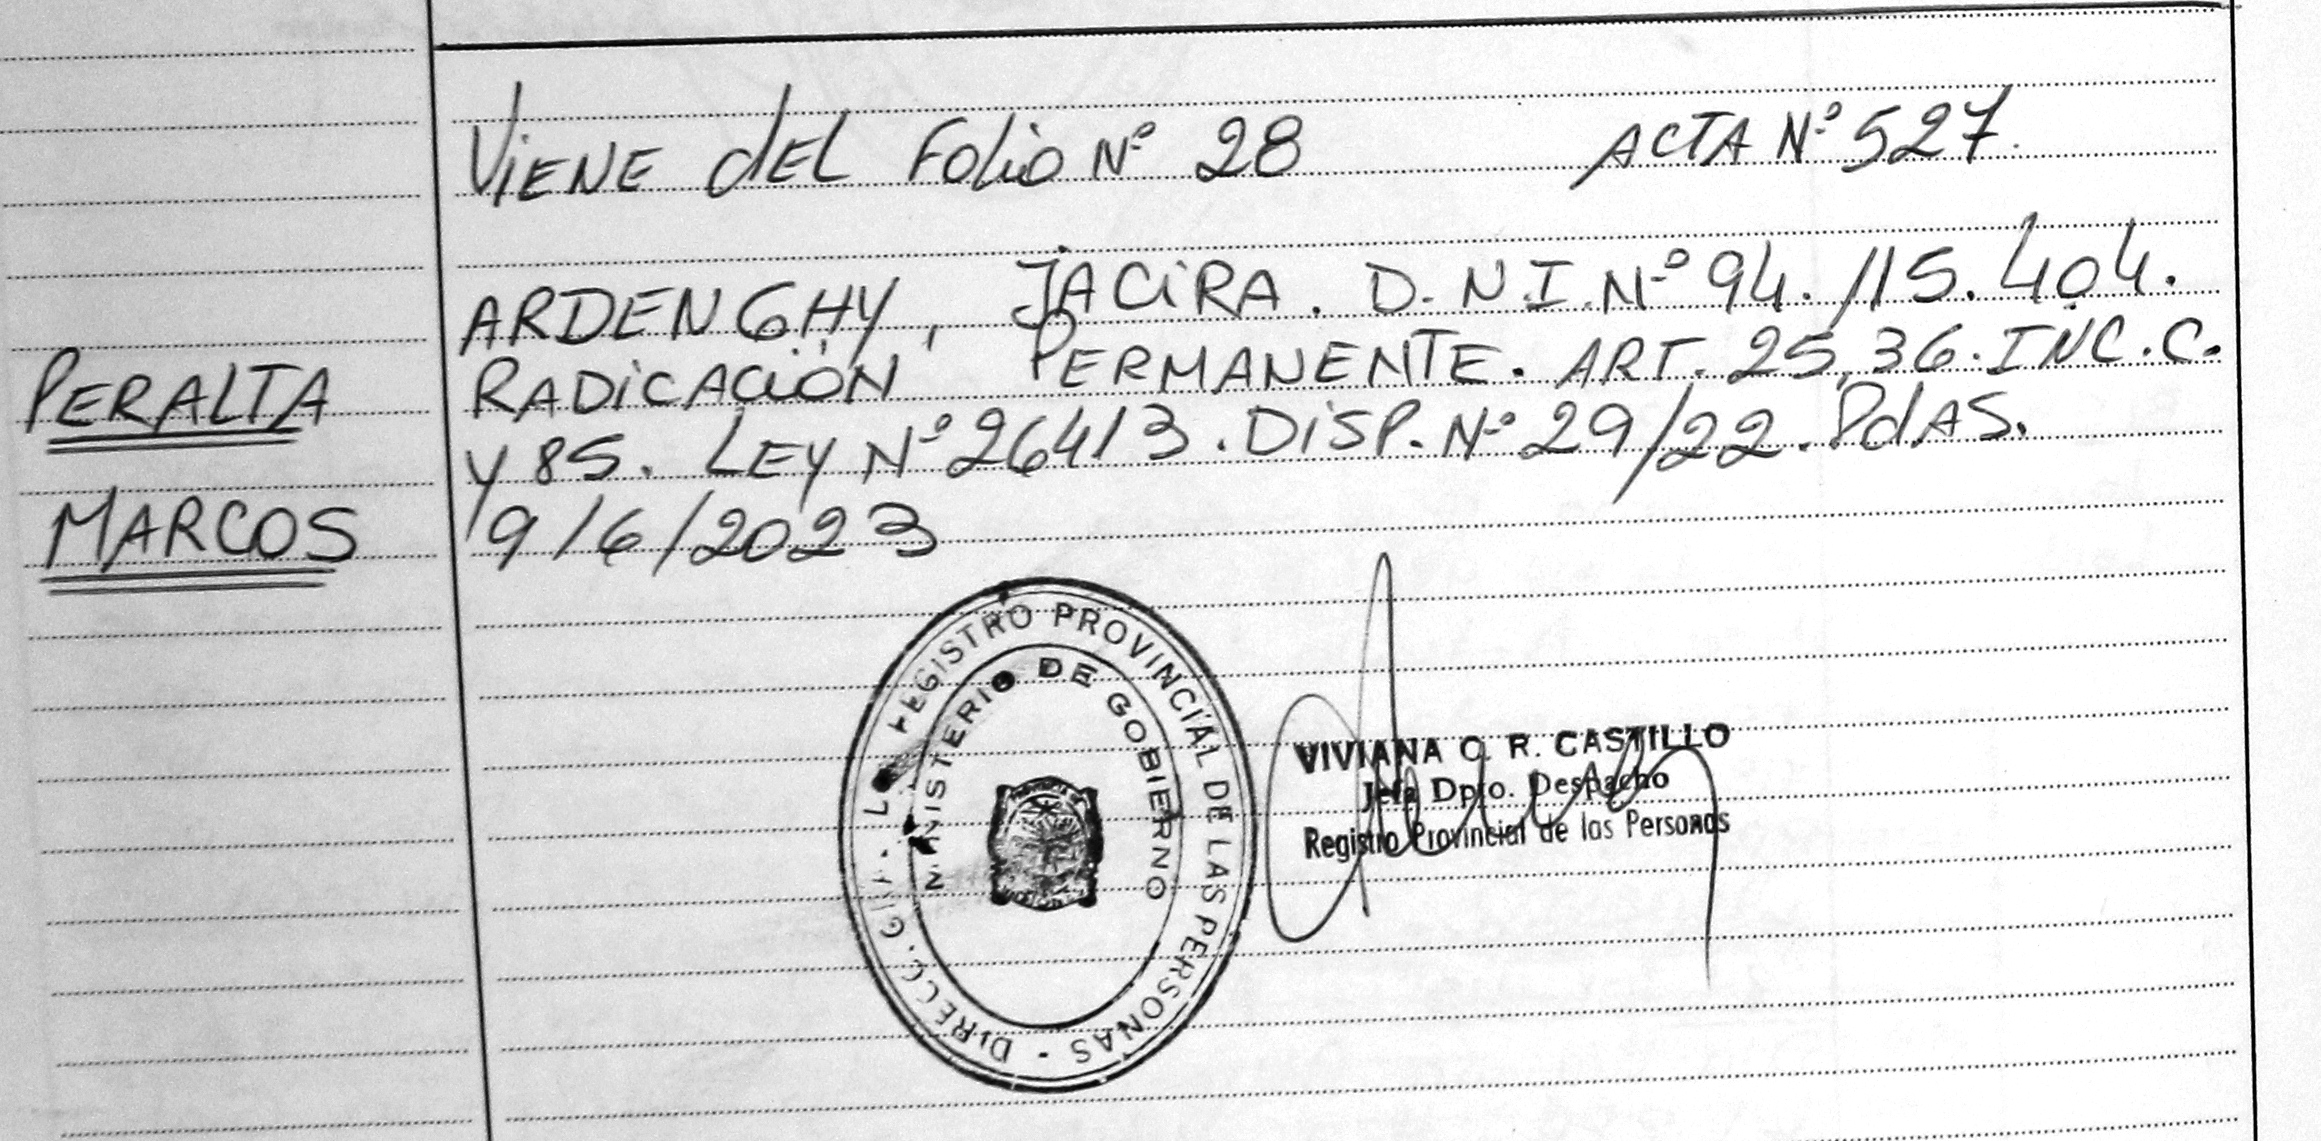 ViENE dEL Folio Nº 28 ACTA Nº 527.
ARDENGHY, JACiRA. D.N.I. Nº 94.115.404.
RADiCACiÓN PERMANENTE. ART. 25, 36. INC. C.
Y 85. LEY Nº 26413. DiSP. Nº 29/22. PdAS.
19/6/2023
PERALTA
MARCOS
REGISTRO PROVINCIAL DE LAS PERSONAS - DIRECC. GRAL.
MINISTERIO DE GOBIERNO
VIVIANA C. R. CASTILLO
Jefa Dpto. Despacho
Registro Provincial de las Personas